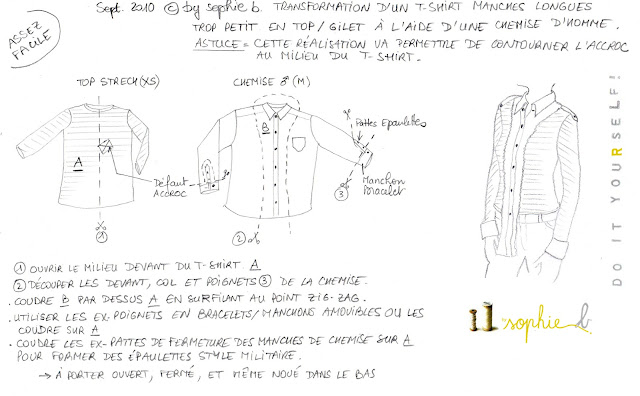 Sept. 2010 © by sophie b. TRANSFORMATION D'UN T-SHIRT MANCHES LONGUES
TROP PETIT EN TOP/GILET À L'AIDE D'UNE CHEMISE D'HOMME.
ASTUCE = CETTE RÉALISATION VA PERMETTRE DE CONTOURNER L'ACCROC
AU MILIEU DU T-SHIRT.
ASSEZ
FACILE
TOP STRECH (XS)
CHEMISE ♂ (M)
A
B
Pattes Epaulettes
Défaut
Accroc
Manchon
Bracelet
1
2
3
DO IT YOURSELF!
① OUVRIR LE MILIEU DEVANT DU T-SHIRT A
② DÉCOUPER LES DEVANT, COL ET POIGNETS ③ DE LA CHEMISE.
. COUDRE B PAR DESSUS A EN SURFILANT AU POINT ZIG-ZAG.
. UTILISER LES EX-POIGNETS EN BRACELETS/MANCHONS AMOVIBLES OU LES
COUDRE SUR A
. COUDRE LES EX-PATTES DE FERMETURE DES MANCHES DE CHEMISE SUR A
POUR FORMER DES ÉPAULETTES STYLE MILITAIRE.
→ À PORTER OUVERT, FERMÉ, ET MÊME NOUÉ DANS LE BAS
sophie b